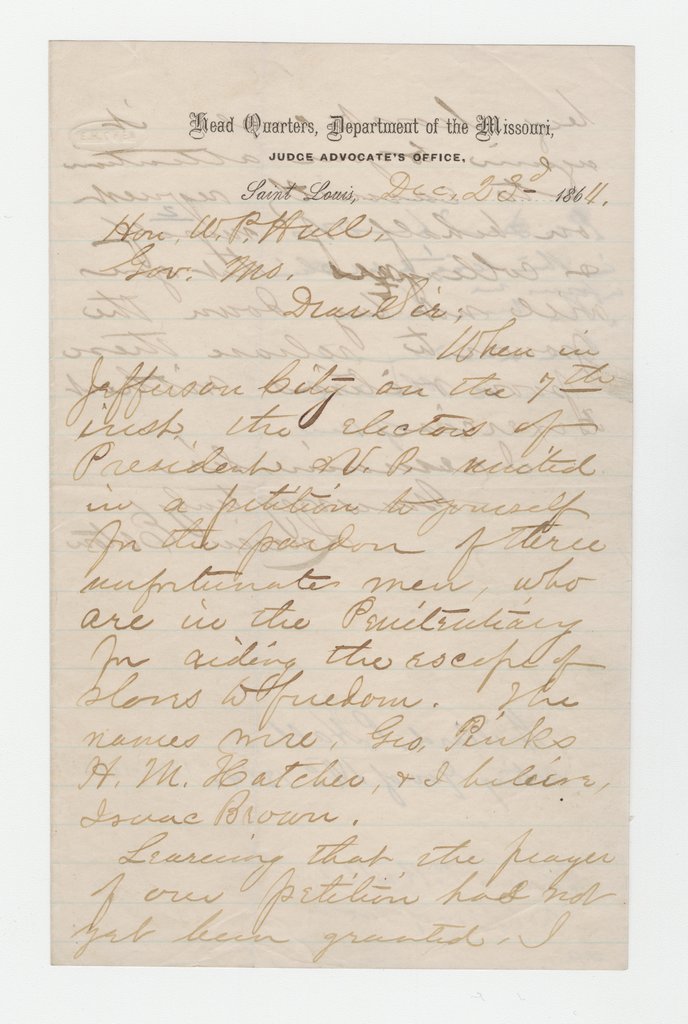 Head Quarters, Department of the Missouri,
JUDGE ADVOCATE'S OFFICE,
Saint Louis, Dec. 23d 1864.
Hon. W. P. Hall,
Gov. Mo.
Dear Sir;
When in
Jefferson City on the 7th
inst. the electors of
President & V. P. united
in a petition to yourself
for the pardon of three
unfortunate men, who
are in the Penitentiary
for aiding the escape of
slaves to freedom. The
names were, Geo. Pinks
H. M. Hatcher, & I believe,
Isaac Brown.
Learning that the prayer
of our petition had not
yet been granted, I